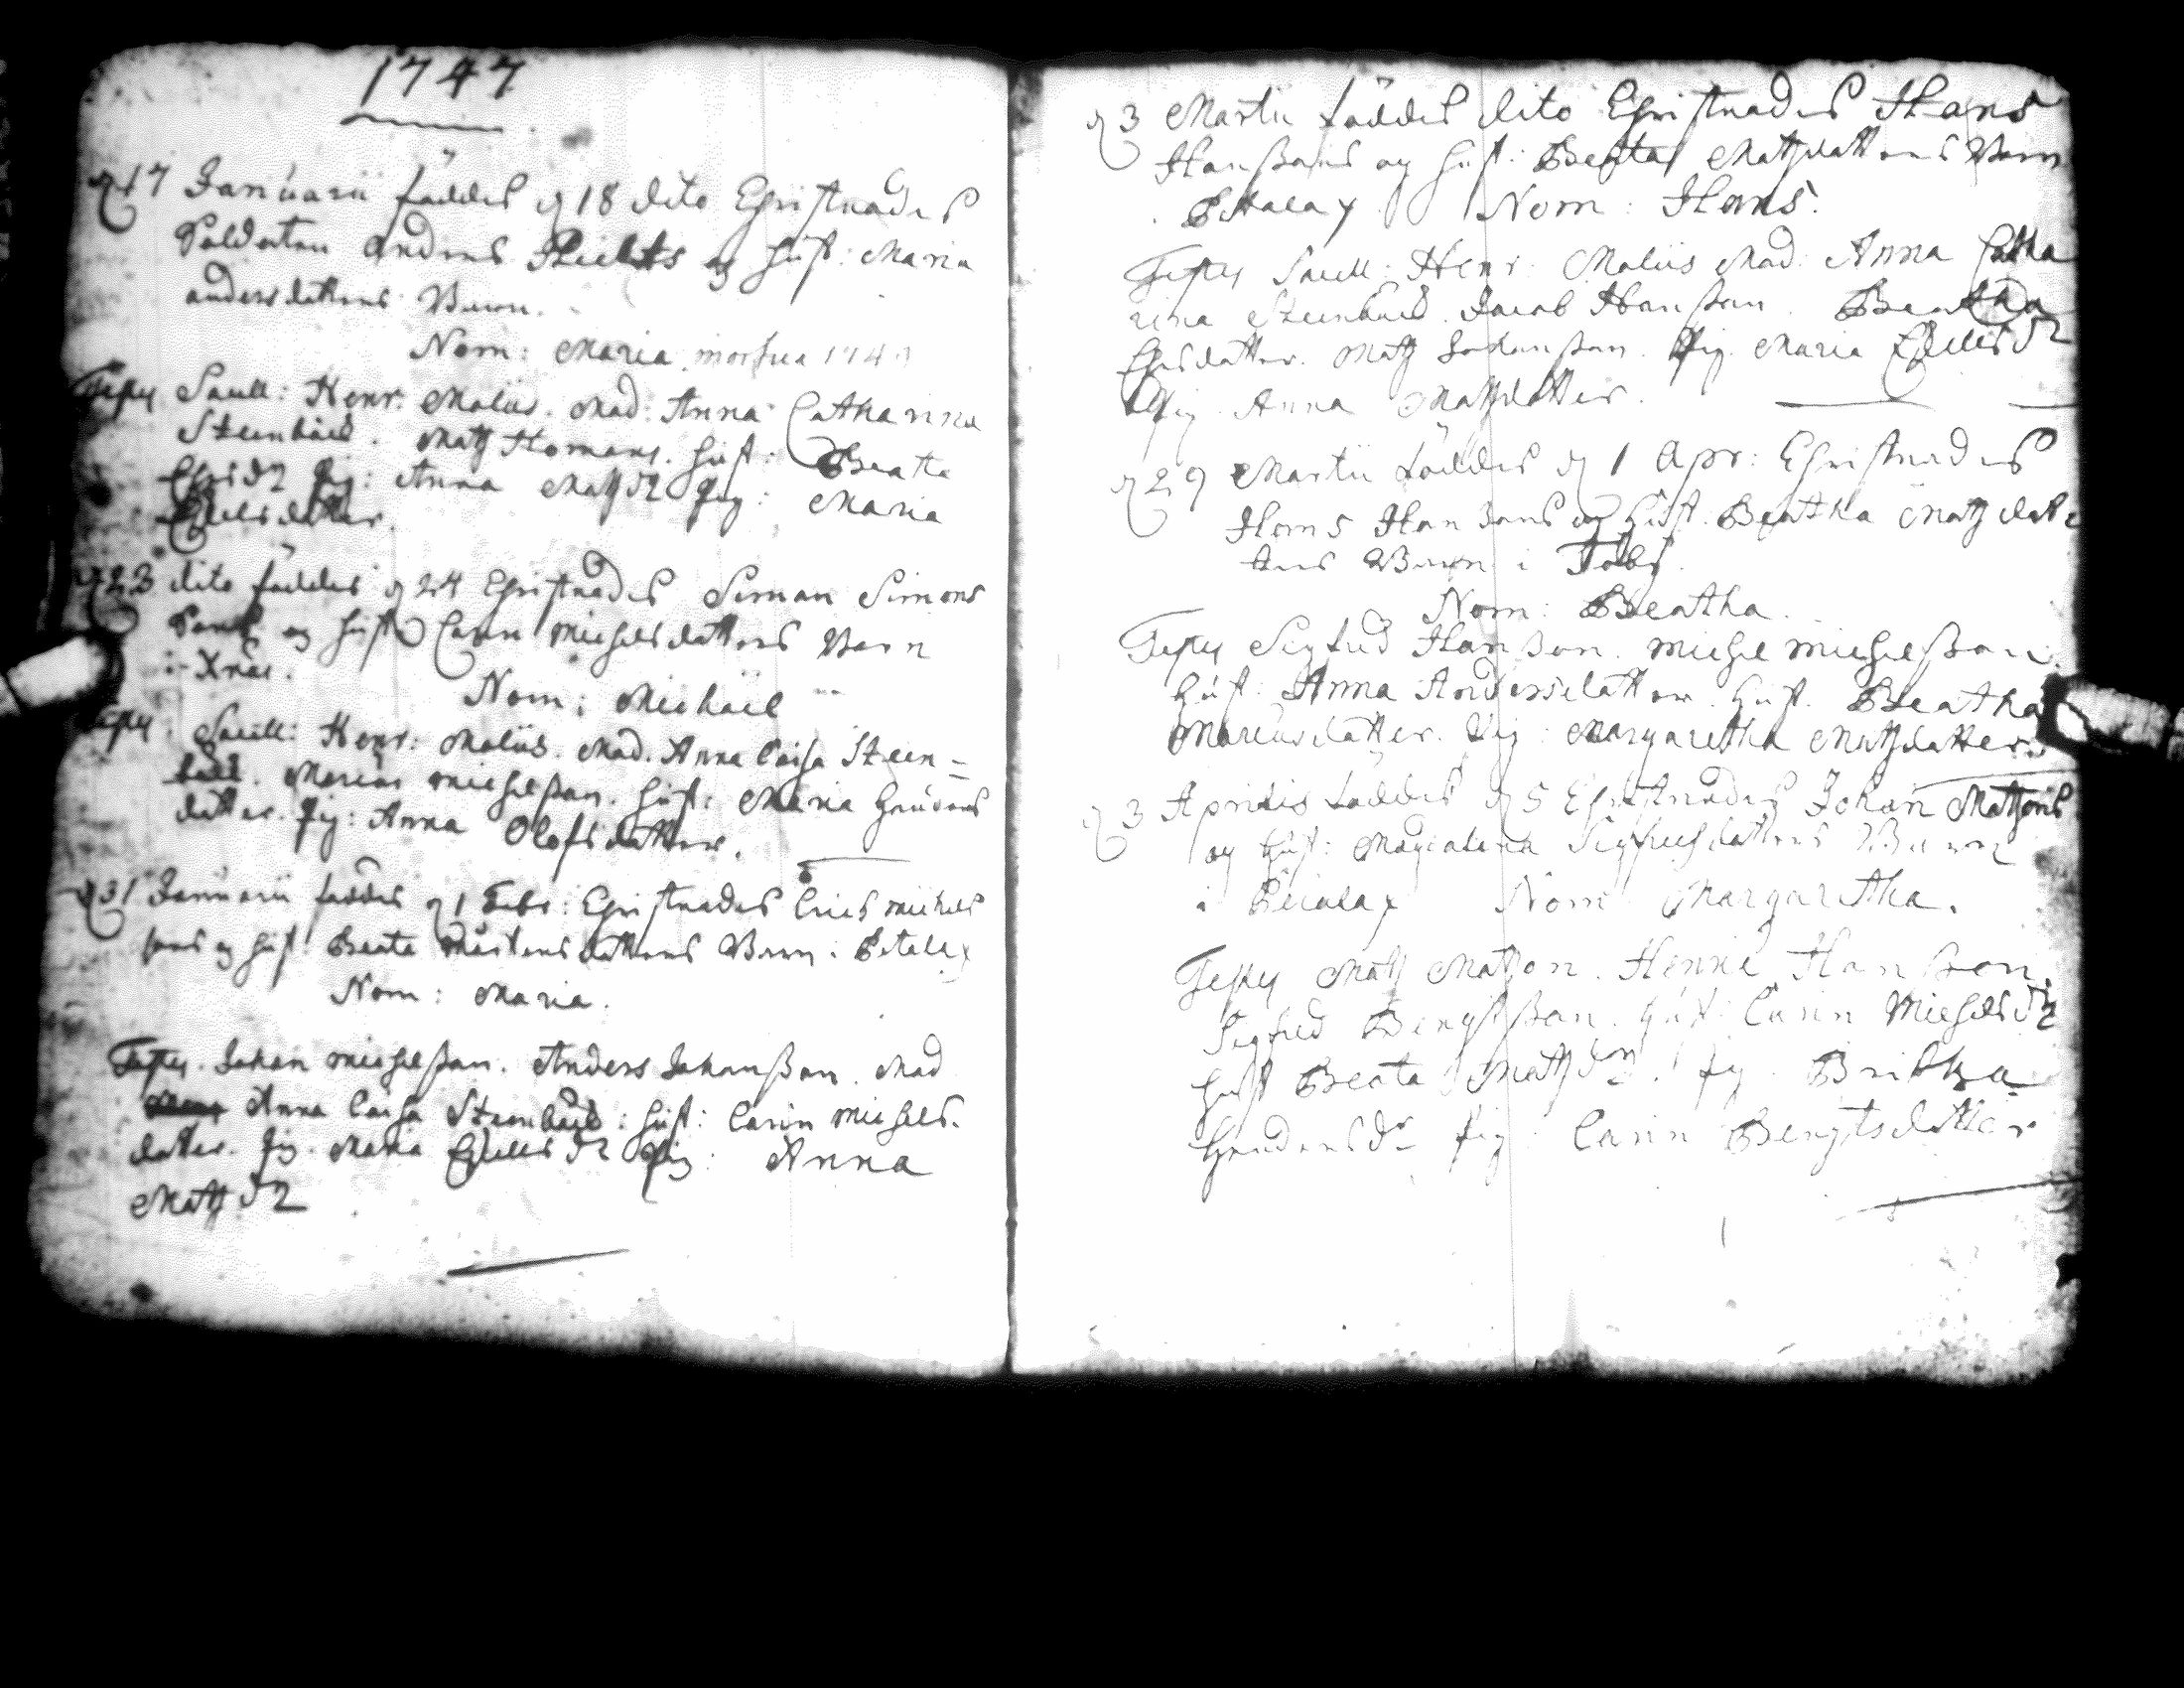 1747
d 17 Januarii föddes d 18 dito Christnades
Soldaten Anders Skielts og Hust: Maria
andersdatters Barn.
Nom: Maria mortua 174
Testes Saull: Henr: Malius. Mad: Anna Catharina
Steenbäck. Matz Homans. Hust: Beata
Chrsdr Pig: Anna Matzdr Pig: Maria
Chielsdatter.
d 23 dito föddes d 24 Christnades Simon Simons
Sons og Hust Carin Michelsdatters Barn
i
Nom: Michael
Testes Saull: Henr: Malius. Mad. Anna Caisa Steen=
bäck. Marcus Michelsson. Hust: Maria Henders
datter. Pig: Anna Olofsdatter.
d 31 Januarii föddes d 1 Febr: Christnades Erics Michels
sons og Hust Beata Mårtensdatters Barn i
Nom: Maria.
Testes. Johan Michelsson. Anders Johansson. Mad
Anna Caisa Steenbäck: Hust: Carin Michels-
datter. Pig. Maria Chielsdr Pig: Anna
Matzdr
d 3 Martii föddes dito Christnades Hans
Hanssons og Hust: Beata Matzdatters Barn
Nom: Hans.
Testes Saull: Henr: Malius Mad: Anna Catha
rina Steenbäck. Jacob Hansson. Beatha
Chrsdatter. Matz Johansson. Pig. Maria Chielsdr
Pig Anna Matzdatter.
d 29 Martii föddes d 1 Apr: Christnades
Hans Hansons og Hust. Beatha Matzdat
ters Barn i Toby.
Nom: Beatha.
Testes Sigfrid Hansson. Michel Michelsson.
Hust: Anna Andersdatter. Hust. Beatha
Marcusdatter. Pig: Margaretha Matzdatter.
d 3 Aprilis föddes d 5 Christnades Johan Matzons
og Hust: Magdalena Sigfridsdatters Barn
i Nom Margaretha.
Testes Matz Matzon. Henric Hansson.
Sigfrid Bengtsson. Hust: Carin Michelsdr
Hust Beata Matzdr. Pig Britha
Hendersdr Pig: Carin Bengtsdatter